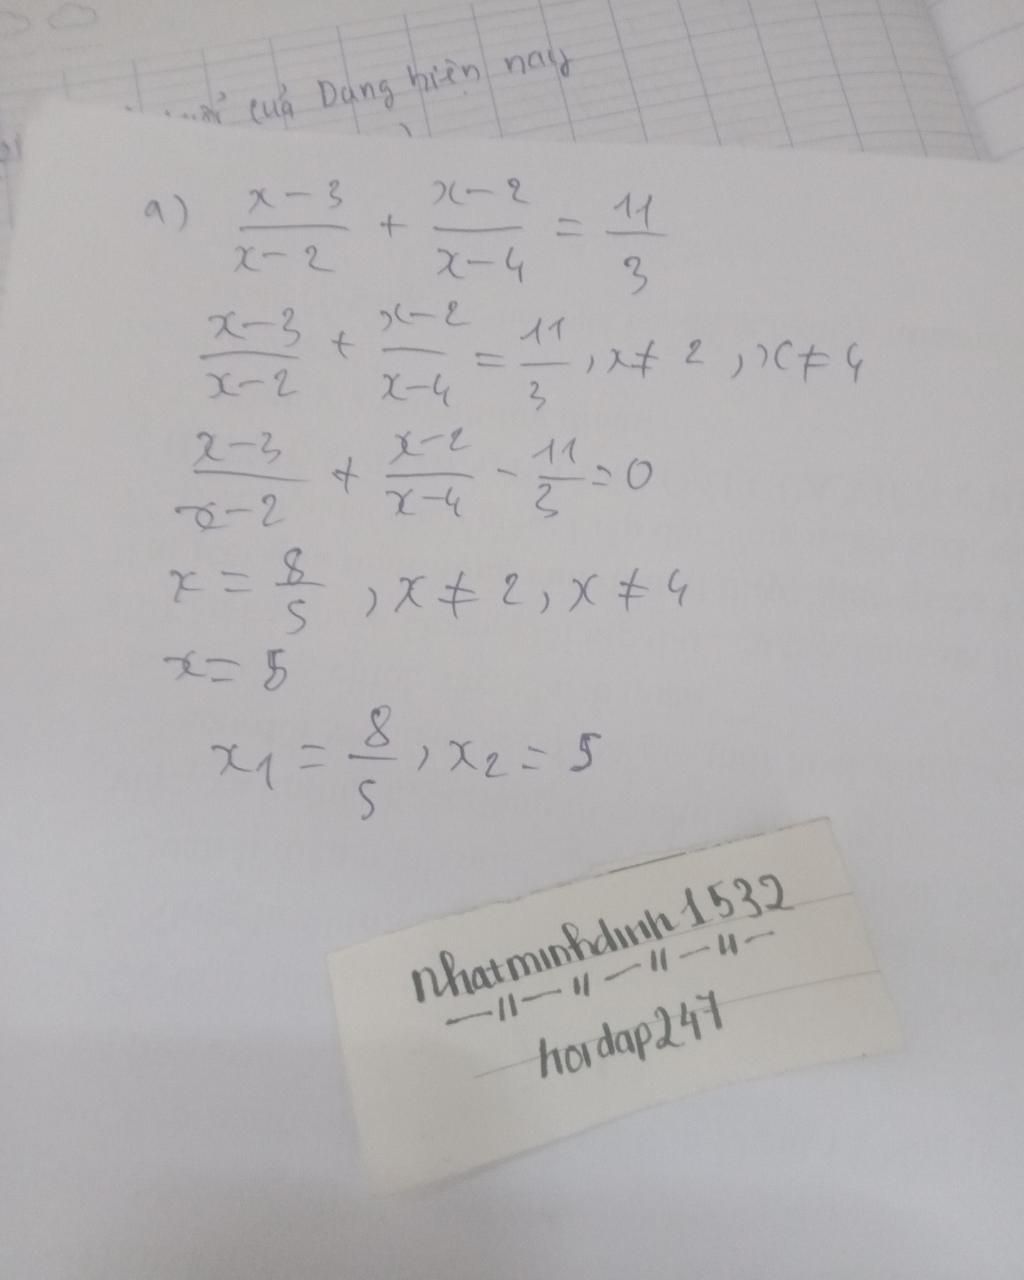 của Dạng hiện nay
a) \frac{x-3}{x-2} + \frac{x-2}{x-4} = \frac{11}{3}
\frac{x-3}{x-2} + \frac{x-2}{x-4} = \frac{11}{3} , x ≠ 2 , x ≠ 4
\frac{x-3}{x-2} + \frac{x-2}{x-4} - \frac{11}{3} = 0
x = \frac{8}{5} , x ≠ 2 , x ≠ 4
x = 5
x_1 = \frac{8}{5} , x_2 = 5
nhatminhdinh1532
—"—"—"—"—
hoidap247